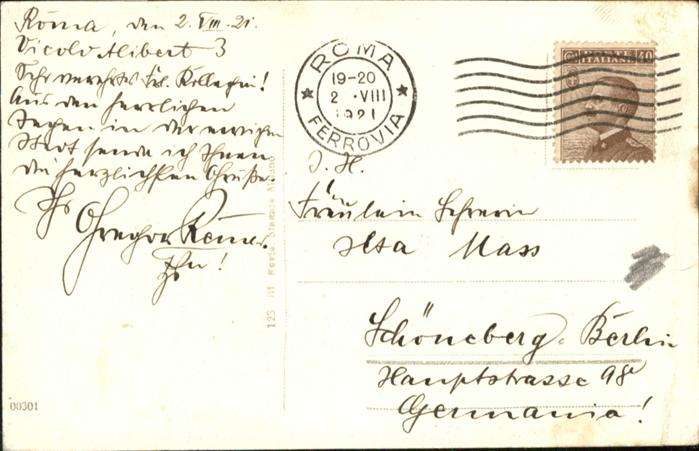 Roma, den 2. VIII. 21.
Vicolo Alibert 3
Sehr verehrtes Frl. Kollegin!
Aus den herrlichen
Tagen in der ewigen
Stadt sende ich Ihnen
die herzlichsten Grüße.
Ihr Gregor
ROMA
19-20
2 ·VIII
1921
FERROVIA
ITALIANE
40
Fräulein Lehrerin
Ilsa Mass
Schöneberg-Berlin
Hauptstrasse 98
Germania!
00301